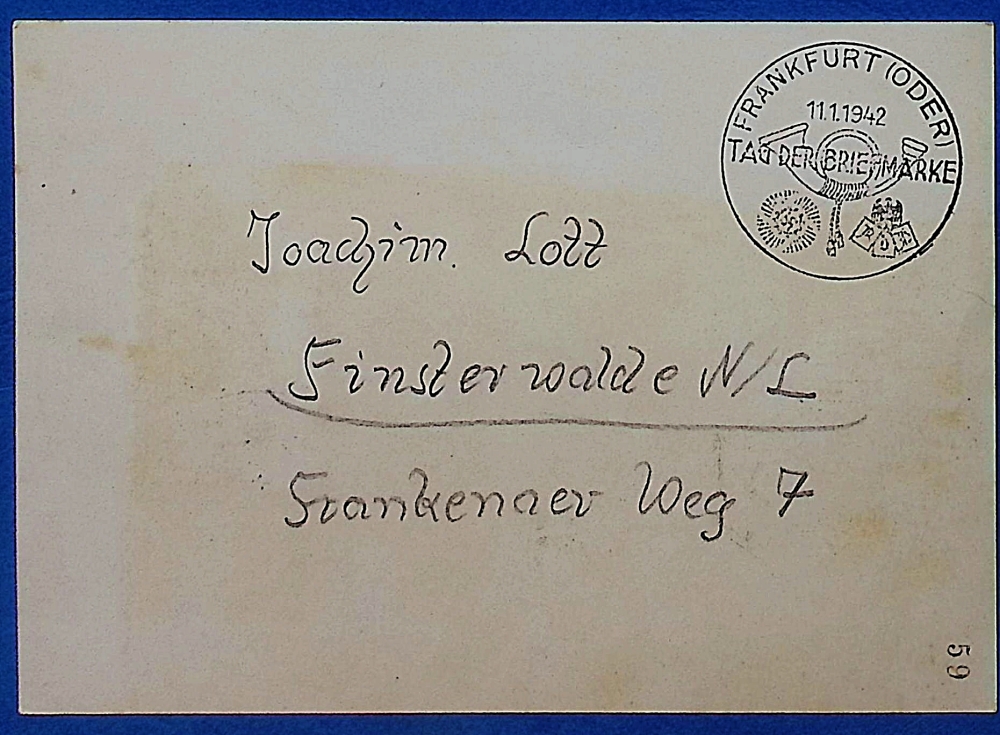 FRANKFURT (ODER)
11.1.1942
TAG DER BRIEFMARKE
Joachim Lott
Finsterwalde N/L
Frankenaer Weg 7
59